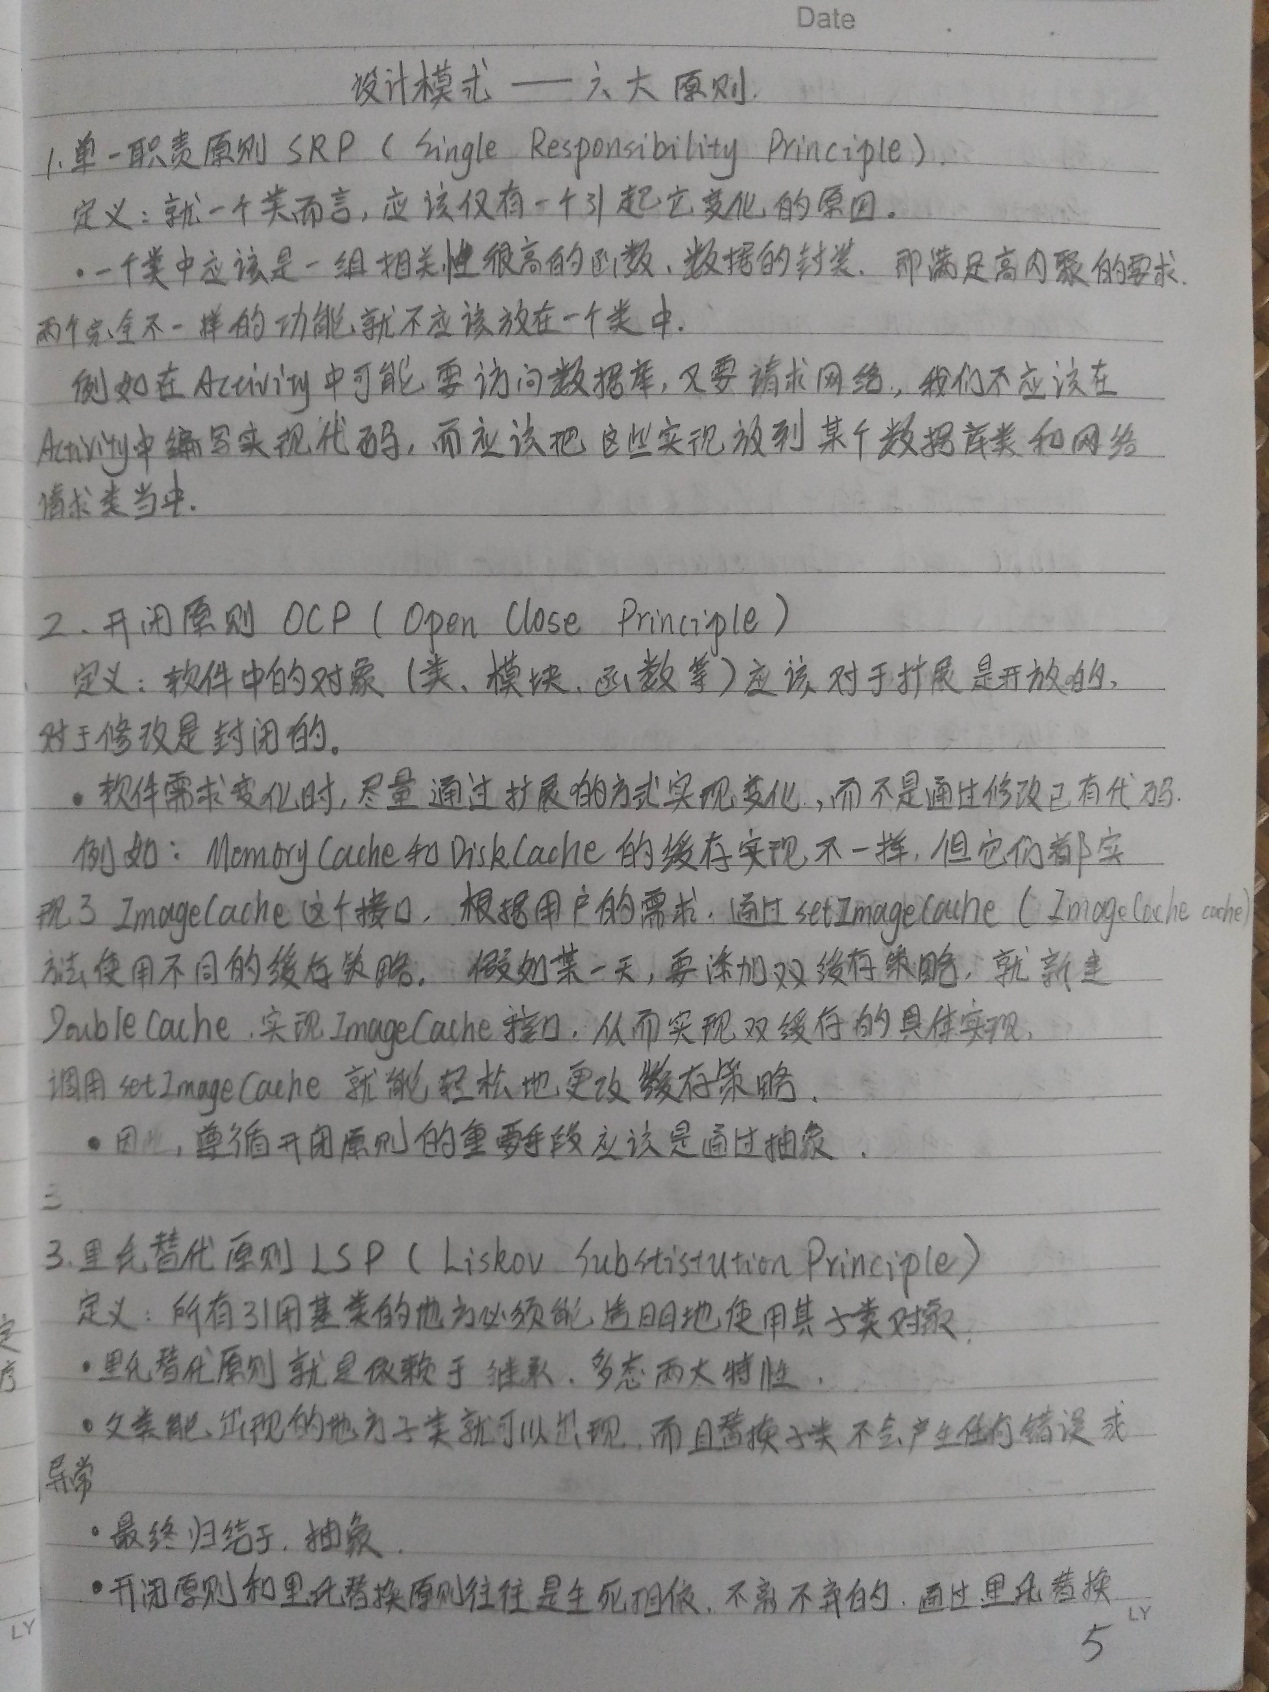 Date
设计模式 —— 六大原则.
1.单一职责原则 SRP ( Single Responsibility Principle ).
定义:就一个类而言,应该仅有一个引起它变化的原因。
·一个类中应该是一组相关性很高的函数、数据的封装. 即满足高内聚的要求.
两个完全不一样的功能就不应该放在一个类中.
例如在Activity中可能要访问数据库,又要请求网络,我们不应该在
Activity中编写实现代码,而应该把这些实现放到某个数据库类和网络
请求类当中.
2.开闭原则 OCP ( Open Close Principle )
定义:软件中的对象(类、模块、函数等)应该对于扩展是开放的,
对于修改是封闭的。
·软件需求变化时,尽量通过扩展的方式实现变化,而不是通过修改已有代码.
例如: MemoryCache和DiskCache的缓存实现不一样,但它们都实
现了ImageCache这个接口. 根据用户的需求,通过setImageCache ( ImageCache cache)
方法使用不同的缓存策略. 假如某一天,要添加双缓存策略,就新建
DoubleCache.实现ImageCache接口,从而实现双缓存的具体实现,
调用setImageCache 就能轻松地更改缓存策略.
·因此,遵循开闭原则的重要手段应该是通过抽象.
三
3.里氏替代原则 LSP ( Liskov Substistution Principle )
定义:所有引用基类的地方必须能透明地使用其子类对象.
·里氏替代原则就是依赖于继承、多态两大特性.
·父类能出现的地方子类就可以出现,而且替换子类不会产生任何错误或
异常
·最终归结于.抽象.
·开闭原则和里氏替换原则往往是生死相依、不离不弃的.通过里氏替换
LY
5
LY